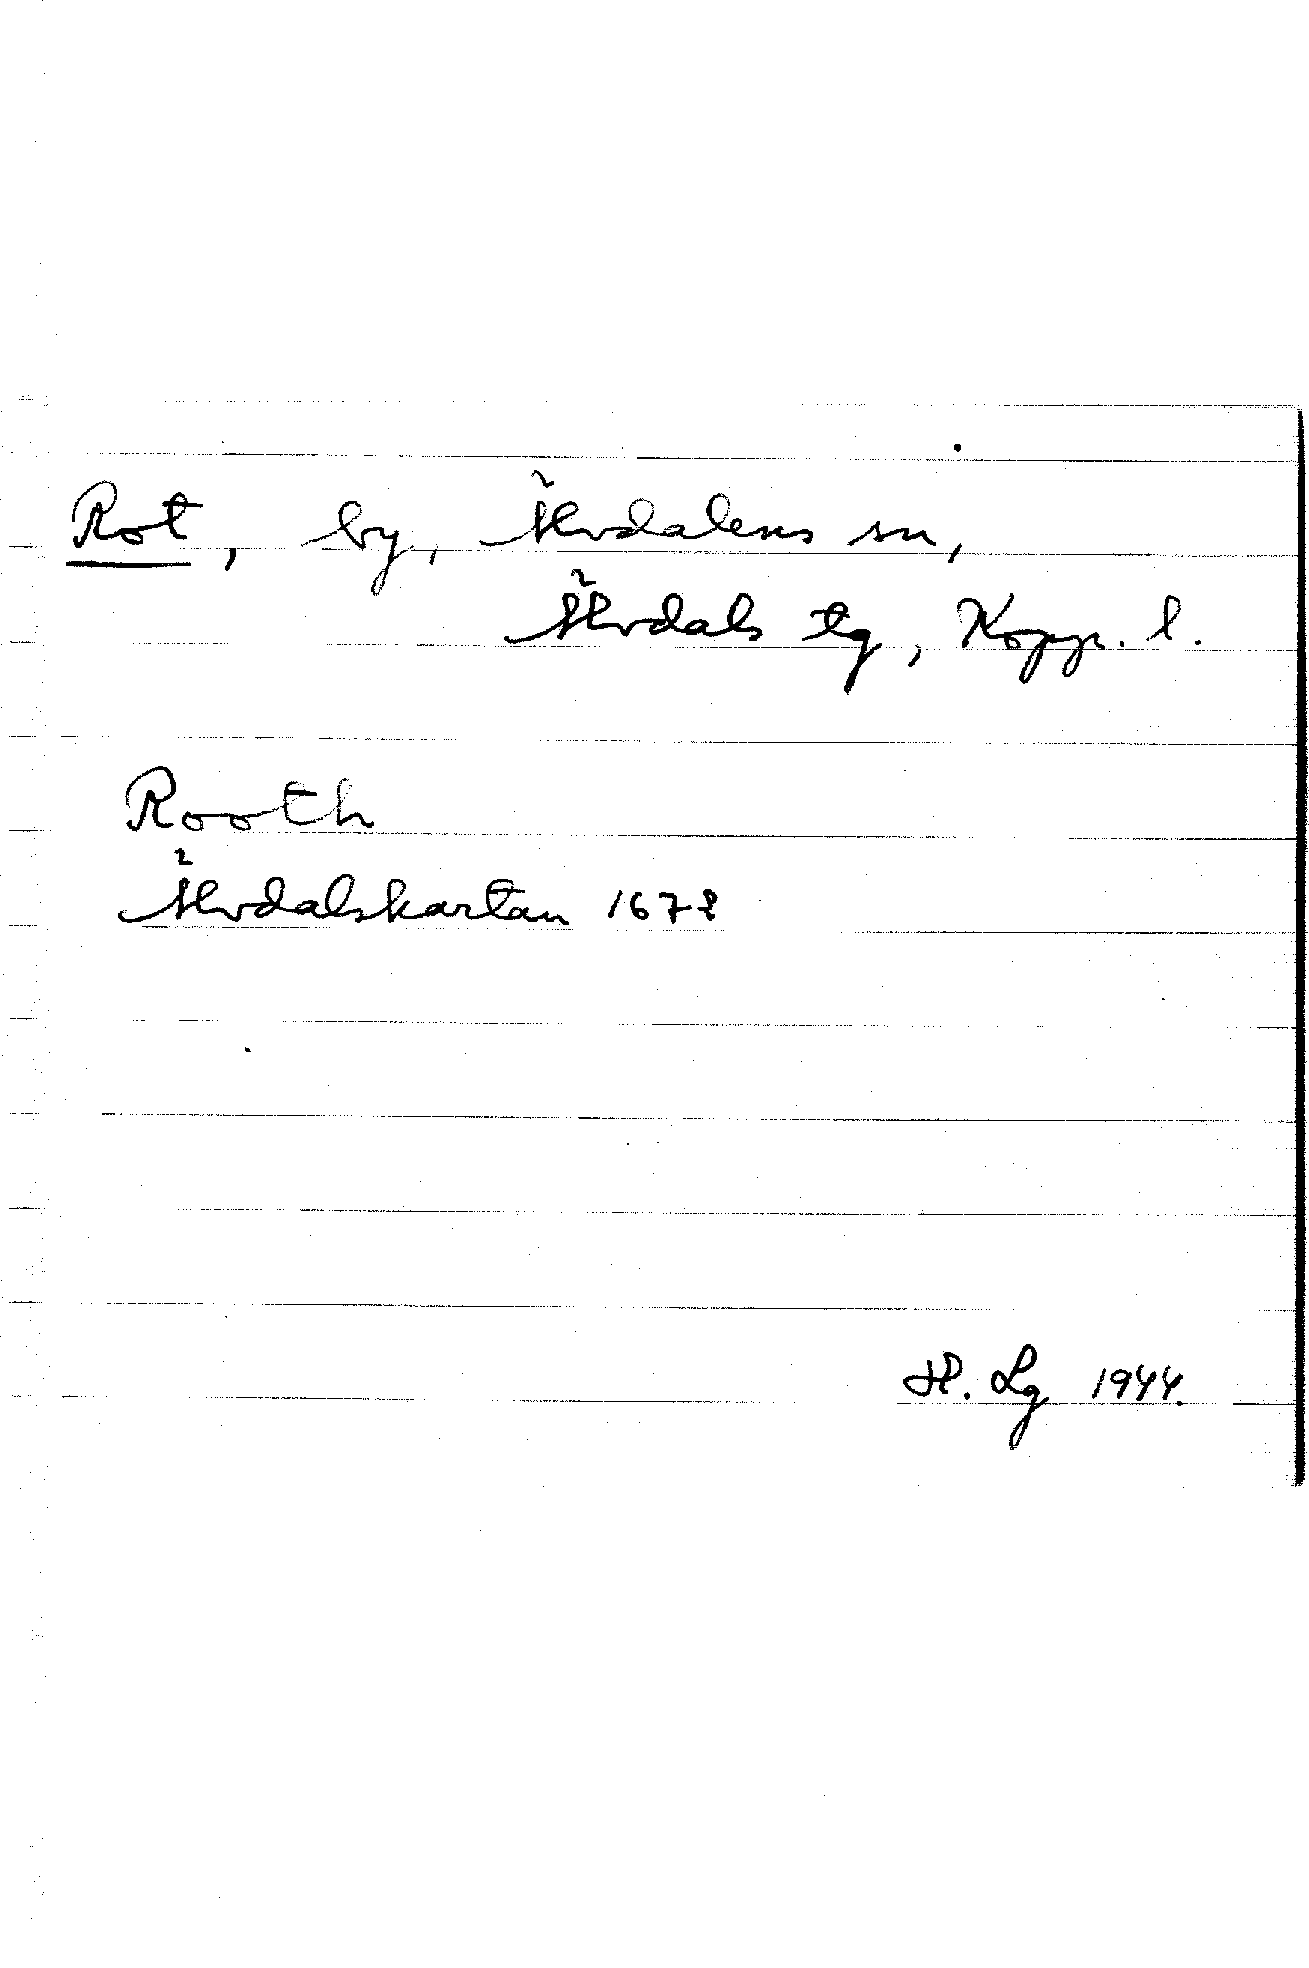 Rot, by, Älvdalens sn,
Älvdals tg, Kopp. l.
Rooth
Älvdalskartan 1678
H. Lg 1944.